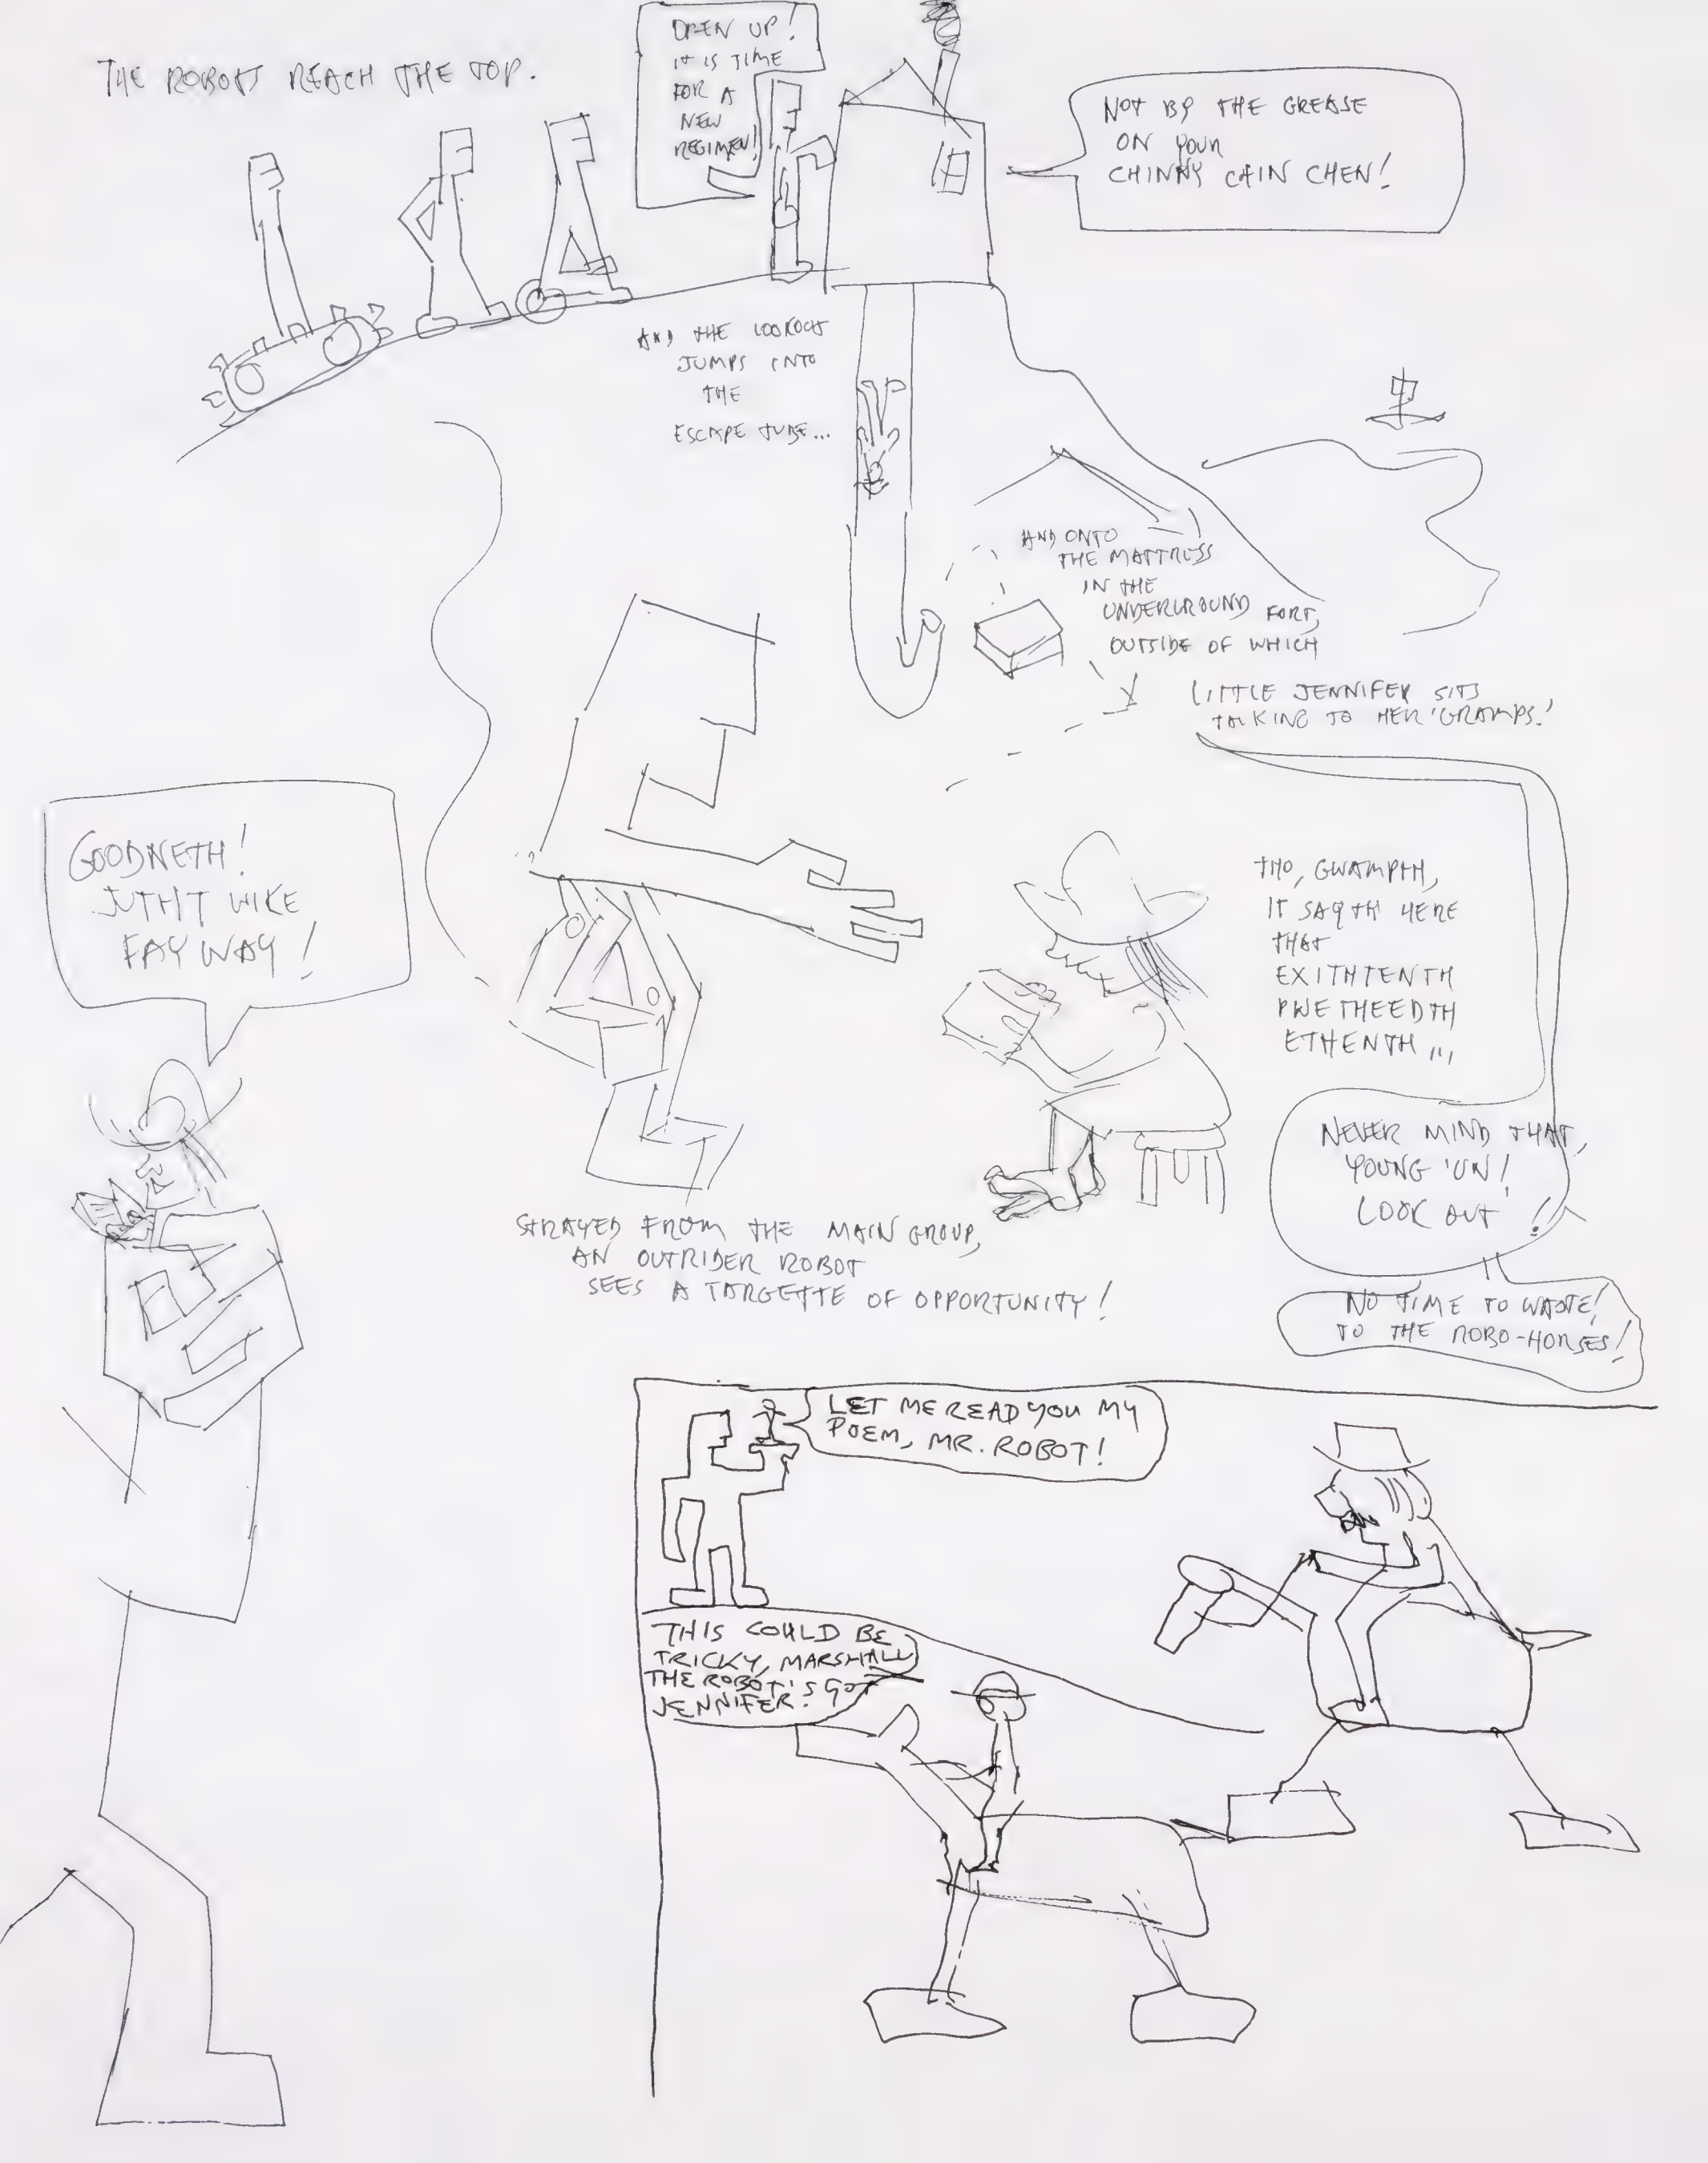 THE ROBOTS REACH THE TOP.
OPEN UP!
IT IS TIME
FOR A
NEW
REGIMEN!
NOT BY THE GREASE
ON YOUR
CHINNY CHIN CHEN!
AND THE LOOKOUT
JUMPS INTO
THE
ESCAPE TUBE...
AND ONTO
THE MATTRESS
IN THE
UNDERGROUND FORT,
OUTSIDE OF WHICH
LITTLE JENNIFER SITS
TALKING TO HER 'GRAMPS.'
THO, GWAMPTH,
IT SAYTH HERE
THAT
EXITHTENTH
PWETHEEDTH
ETHENTH...
NEVER MIND THAT,
YOUNG 'UN!
LOOK OUT!
NO TIME TO WASTE!
TO THE ROBO-HORSES!
STRAYED FROM THE MAIN GROUP,
AN OUTRIDER ROBOT
SEES A TARGETTE OF OPPORTUNITY!
GOODNETH!
JUTHT WIKE
FAY WAY!
LET ME READ YOU MY
POEM, MR. ROBOT!
THIS COULD BE
TRICKY, MARSHALL
THE ROBOT'S GOT
JENNIFER!